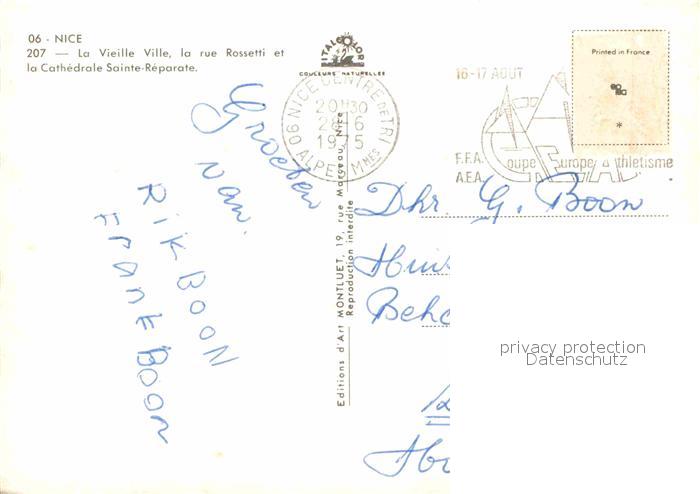 06 - NICE
207 — La Vieille Ville, la rue Rossetti et
la Cathédrale Sainte-Réparate.
ITALCOLOR
COULEURS NATURELLES
06 NICE CENTRE DE TRI
20H30
28-6
1975
ALPES Mmes
16-17 AOUT
F.F.A. Coupe d'Europe d'Athlétisme
A.E.A.
Printed in France
*
Groeten
van.
RIK BOON
FRANK BOON
Editions d'Art MONTLUET, 19, rue Marceau, Nice
Reproduction interdite
Dhr. G. Boon
privacy protection
Datenschutz